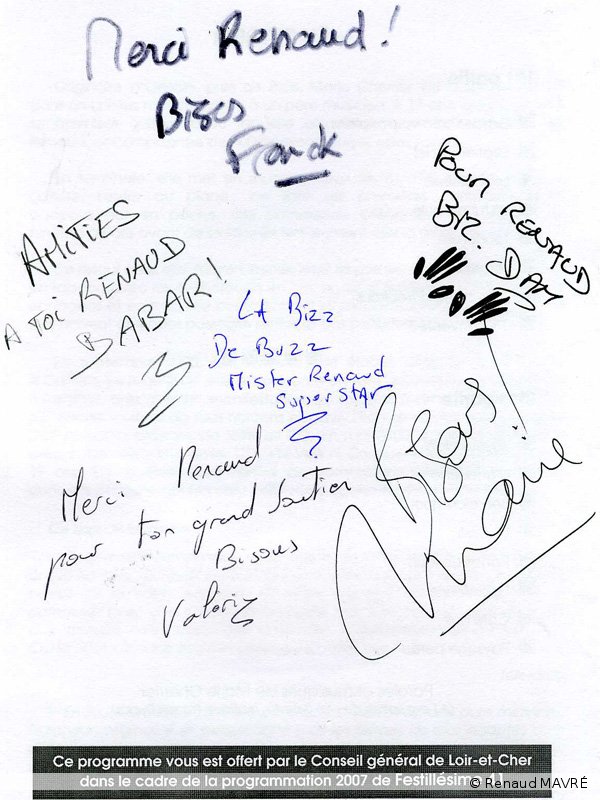 Merci Renaud!
Bises
Franck
POUR RENAUD
BIZ. DAM
AMITIES
A TOI RENAUD
BABAR!
LA Bizz
De Buzz
Mister Renaud
Superstar
Bises
Marie
Merci Renaud
pour ton grand soutien
Bisous
Valérie
Ce programme vous est offert par le Conseil général de Loir-et-Cher
dans le cadre de la programmation 2007 de Festillésime 41
© Renaud MAVRÉ